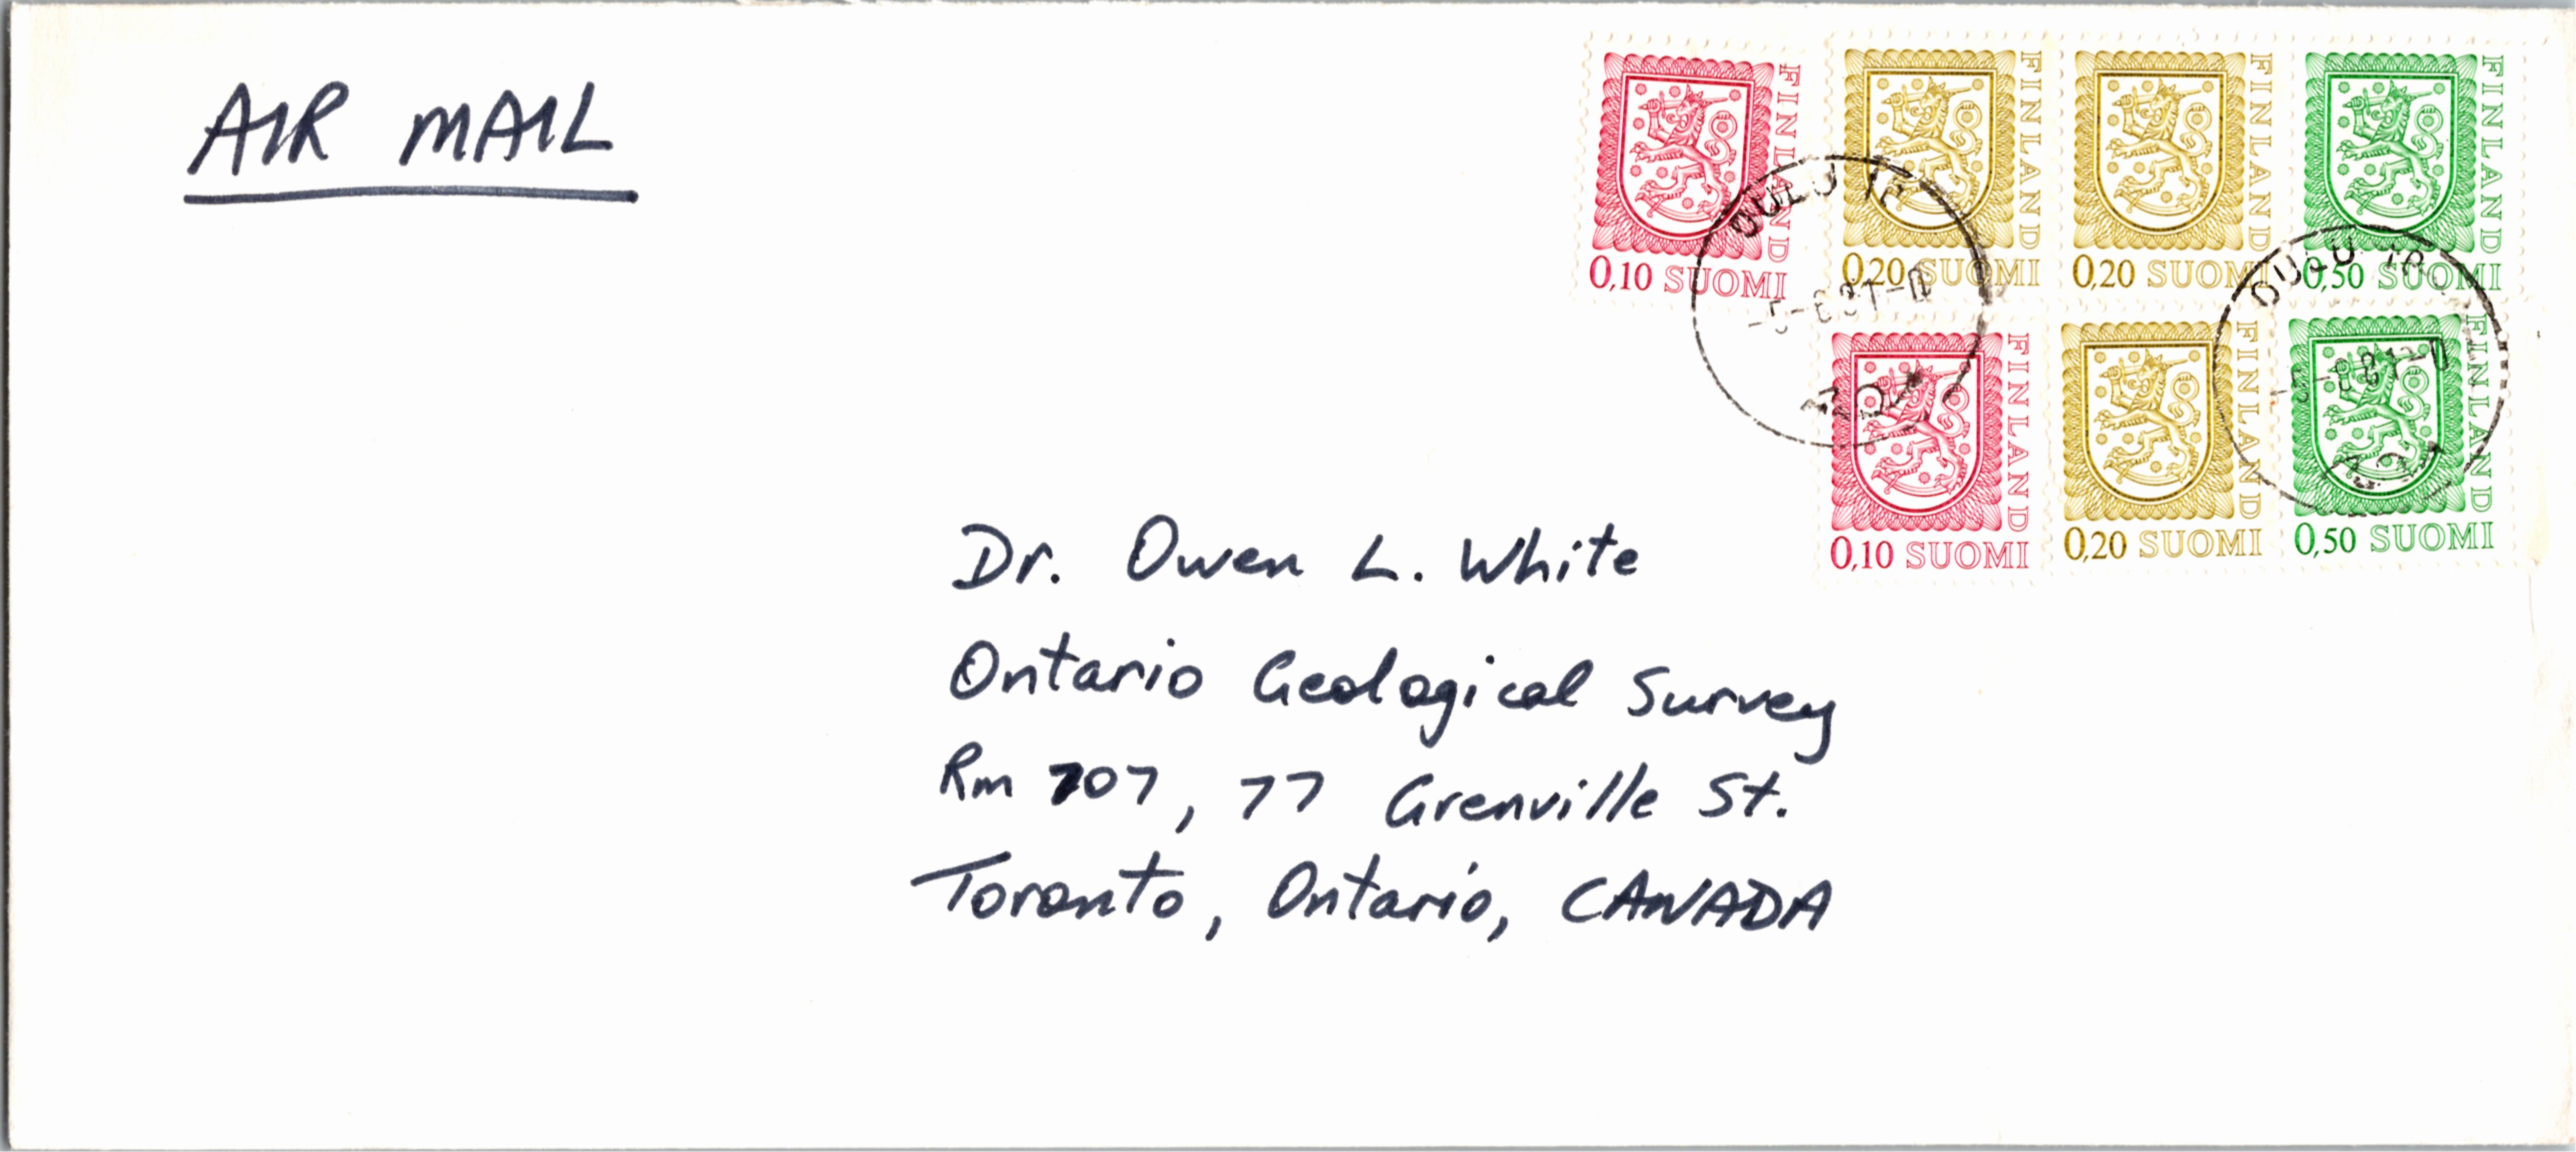 AIR MAIL
FINLAND
0,10 SUOMI
FINLAND
0,20 SUOMI
FINLAND
0,20 SUOMI
FINLAND
0,50 SUOMI
FINLAND
0,10 SUOMI
FINLAND
0,20 SUOMI
FINLAND
0,50 SUOMI
OULU
OULU
Dr. Owen L. White
Ontario Geological Survey
Rm 707, 77 Grenville St.
Toronto, Ontario, CANADA